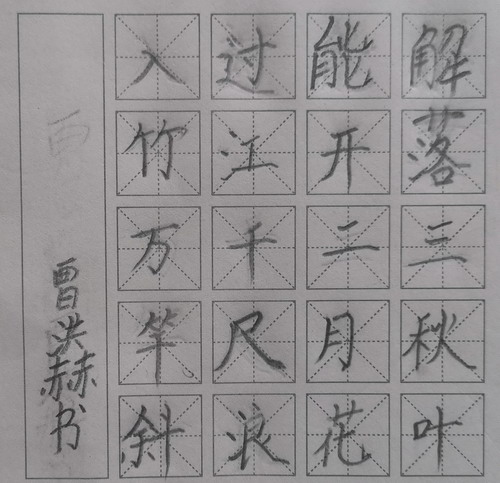 解落三秋叶
能开二月花
过江千尺浪
入竹万竿斜
曹洪赫书